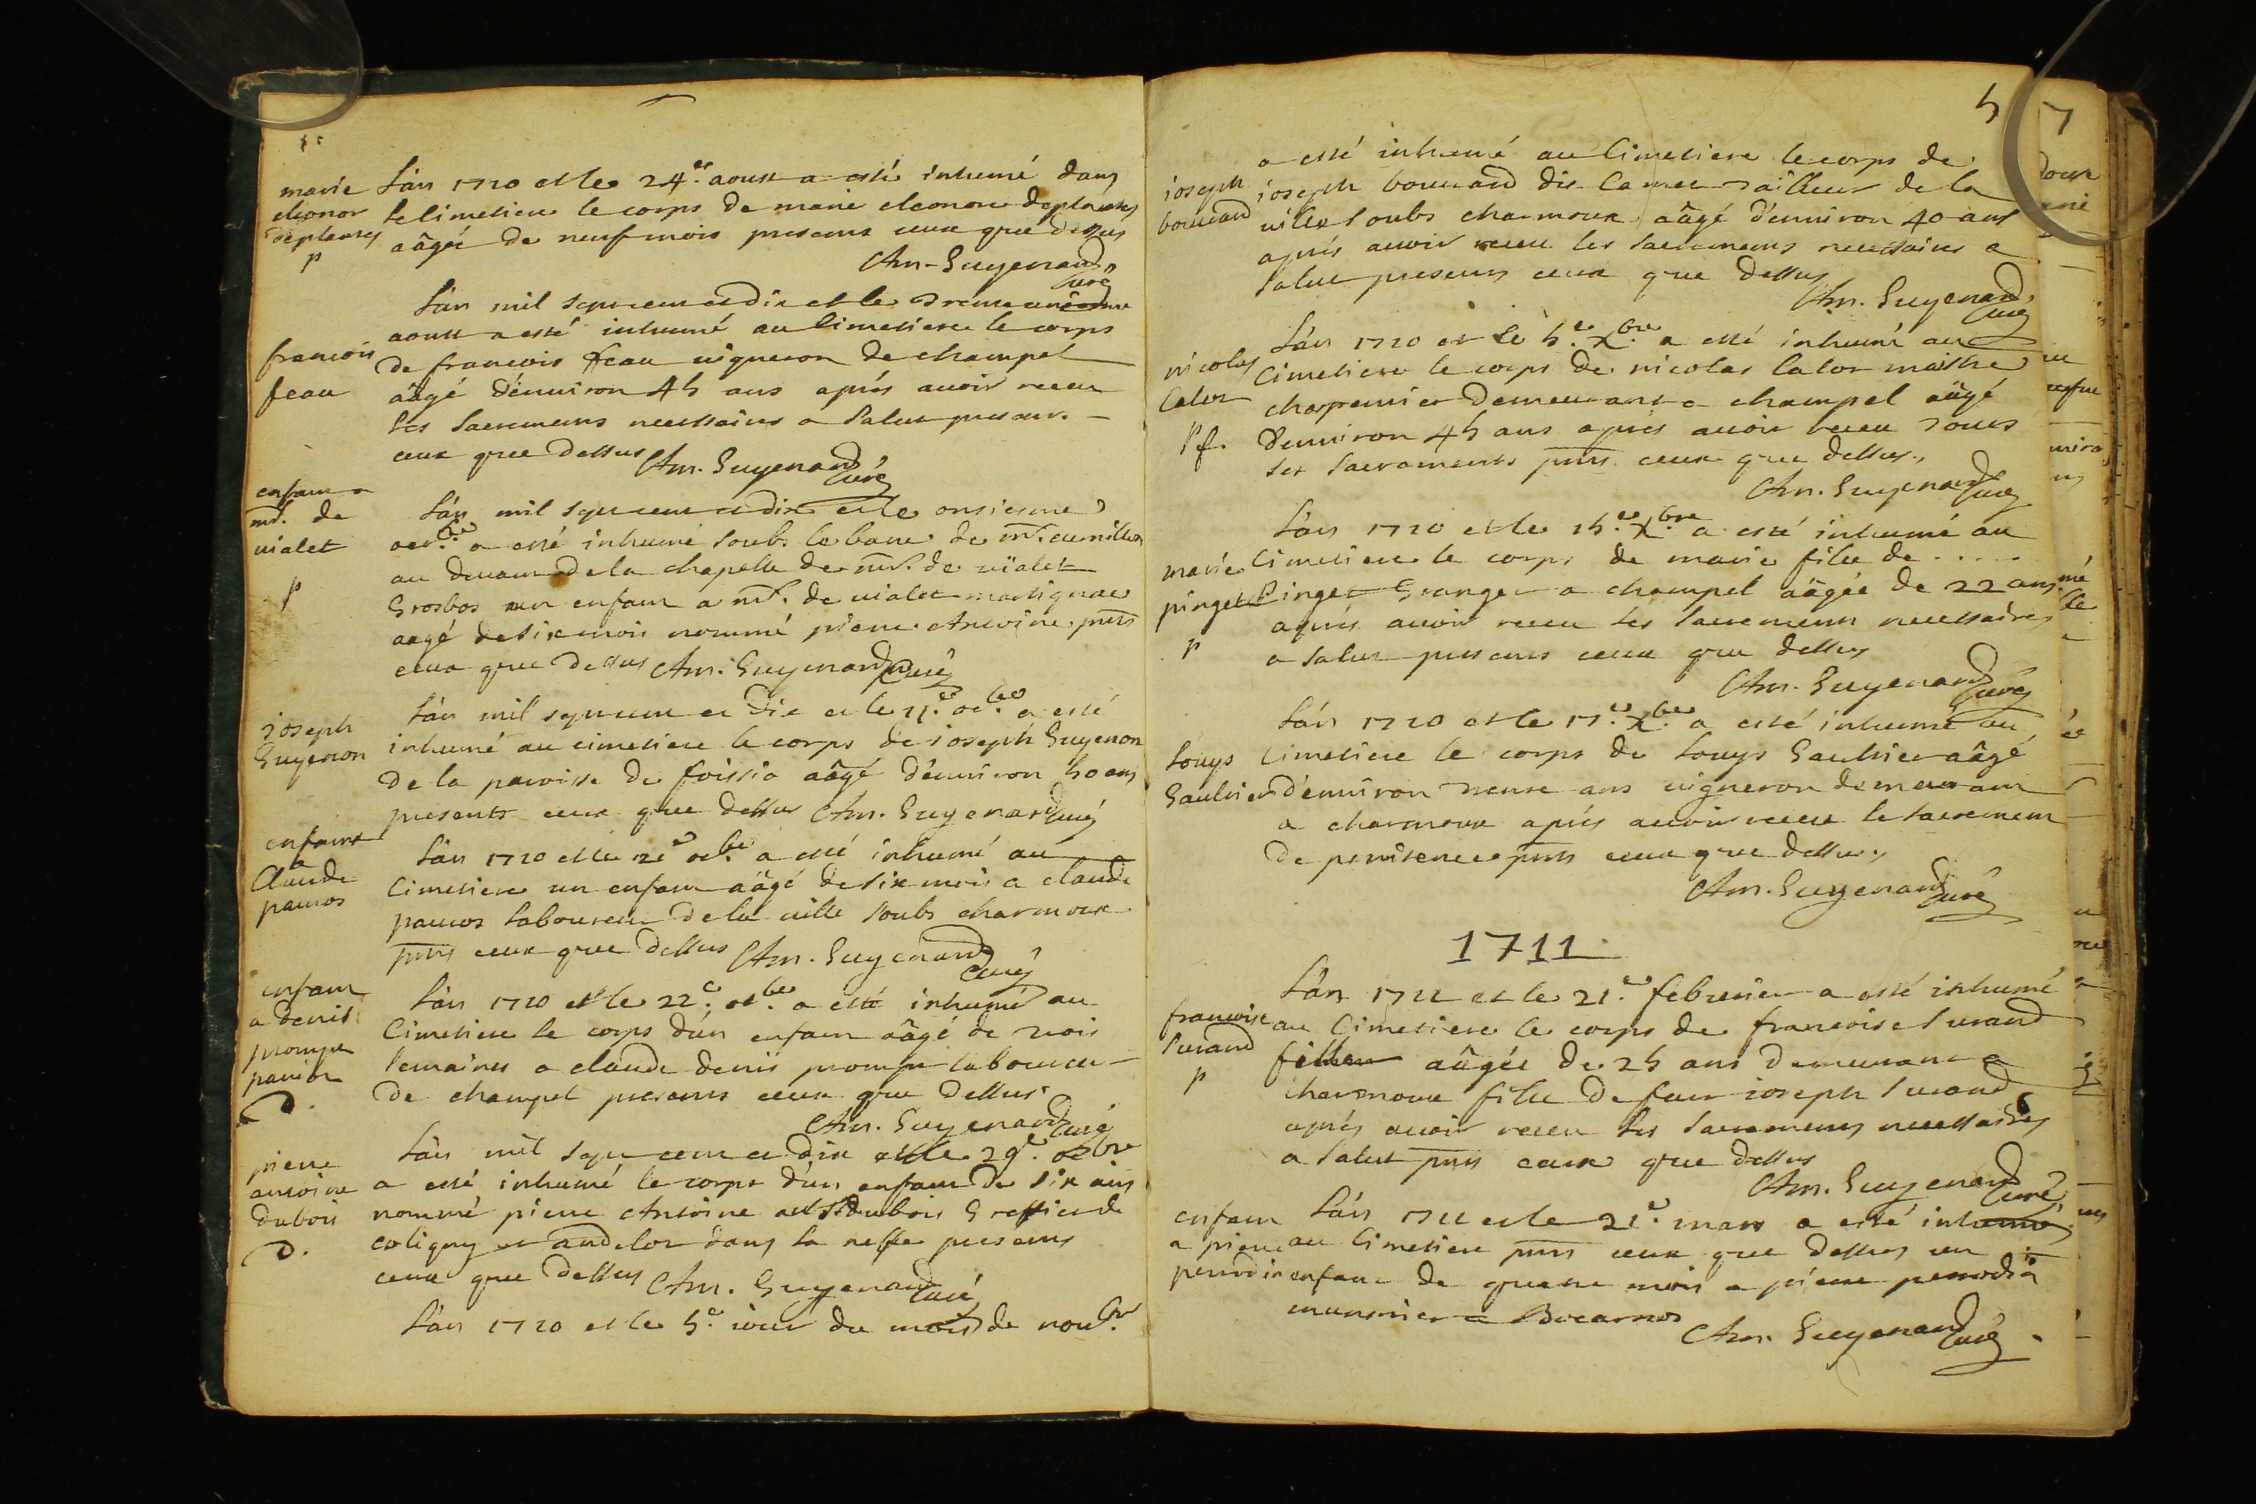 marie
eleonor
deplantes
p
L'an 1710 et le 24.e aoust a esté inhumé dans
le Cimetiere le corps de marie eleonore deplantes
aâgée de neuf mois presens ceux que dessus
Am. Guyenard
Curé
francois
feau
L'an mil sept cent et dix et le trente unéme
aoust a esté inhumé au Cimetiere le corps
de francois feau vigneron de champel
aâgé d'enuiron 45 ans aprés auoir receu
les Sacremens necessaires a Salut presens
ceux que dessus Am. Guyenard
Curé
enfant a
mr. de
vialet
p
L'an mil sept cent et dix et le onsiesme
oct.bre a esté inhumé soubs le banc de mr.
au deuant de la chapelle de mr. de vialet
Grosbos un enfant a mr. de vialet martignac
aagé de six mois nommé pierre Antoine. pnts
ceux que dessus Am. Guyenard Curé
joseph
Guyenon
L'an mil sept cent et dix et le 11.e oc.bre a esté
inhumé au cimetiere le corps de joseph Guyenon
de la paroisse de foissia aâgé d'enuiron 50 ans
presents ceux que dessus Am. Guyenard Curé
enfant
a
Claude
pauios
L'an 1710 et le 21e oc.bre a esté inhumé au
Cimetiere un enfant aâgé de six mois a claude
pauios laboureur de la ville soubs charmoux
pnts ceux que dessus Am. Guyenard
Curé
enfant
a denis
prompt
D.
L'an 1710 et le 22.e oc.bre a esté inhumé au
Cimetiere le corps d'un enfant aâgé de trois
semaines a claude denis prompt laboureur
de champel presens ceux que dessus
Am. Guyenard Curé
pierre
antoine
dubois
D.
L'an mil sept cent et dix et le 29.e oc.bre
a esté inhumé le corps d'un enfant de six ans
nommé pierre Antoine dubois Greffier de
coligny et andelot dans la neffe presens
ceux que dessus Am. Guyenard
Curé
L'an 1710 et le 5.e jour du mois de nou.bre
5
a esté inhumé au Cimetiere le corps de
joseph
bouuard
joseph bouuard dit tailleur de la
ville soubs charmoux aâgé d'enuiron 40 ans
aprés auoir receu les sacremens necessaires a
salut presens ceux que dessus
Am. Guyenard
Curé
nicolas
Calot
pf.
L'an 1710 et le 5.e X.bre a esté inhumé au
Cimetiere le corps de nicolas Calot maistre
charpentier demeurant a champel aâgé
d'enuiron 45 ans aprés auoir receu tous
les sacraments pnts ceux que dessus
Am. Guyenard
Curé
marie
pinget
p
L'an 1710 et le 15.e X.bre a esté inhumé au
Cimetiere le corps de marie fille de ....
Pinget Granger a champel aâgée de 22 ans
aprés auoir receu les sacremens necessaires
a salut presens ceux que dessus
Am. Guyenard
Curé
Louys
Gaultier
L'an 1710 et le 17.e X.bre a esté inhumé au
Cimetiere le corps de Louys Gaultier aâgé
d'enuiron trente ans vigneron demeurant
a charmoux aprés auoir receu le sacrement
de penitence pnts ceux que dessus
Am. Guyenard
Curé
1711
francoise
Surand
p
L'an 1711 et le 21.e febvrier a esté inhumé
au Cimetiere le corps de francoise Surand
aâgée de 25 ans demeurant a
charmoux fille de feu joseph Surand
aprés auoir receu les sacremens necessaires
a salut pnts ceux que dessus
Am. Guyenard
Curé
enfant
a pierre
perrodin
L'an 1711 et le 21.e mars a esté inhumé
au Cimetiere pnts ceux que dessus un
enfant de quatre mois a pierre perrodin
munsnier a Bocarnos
Am. Guyenard
Curé
7